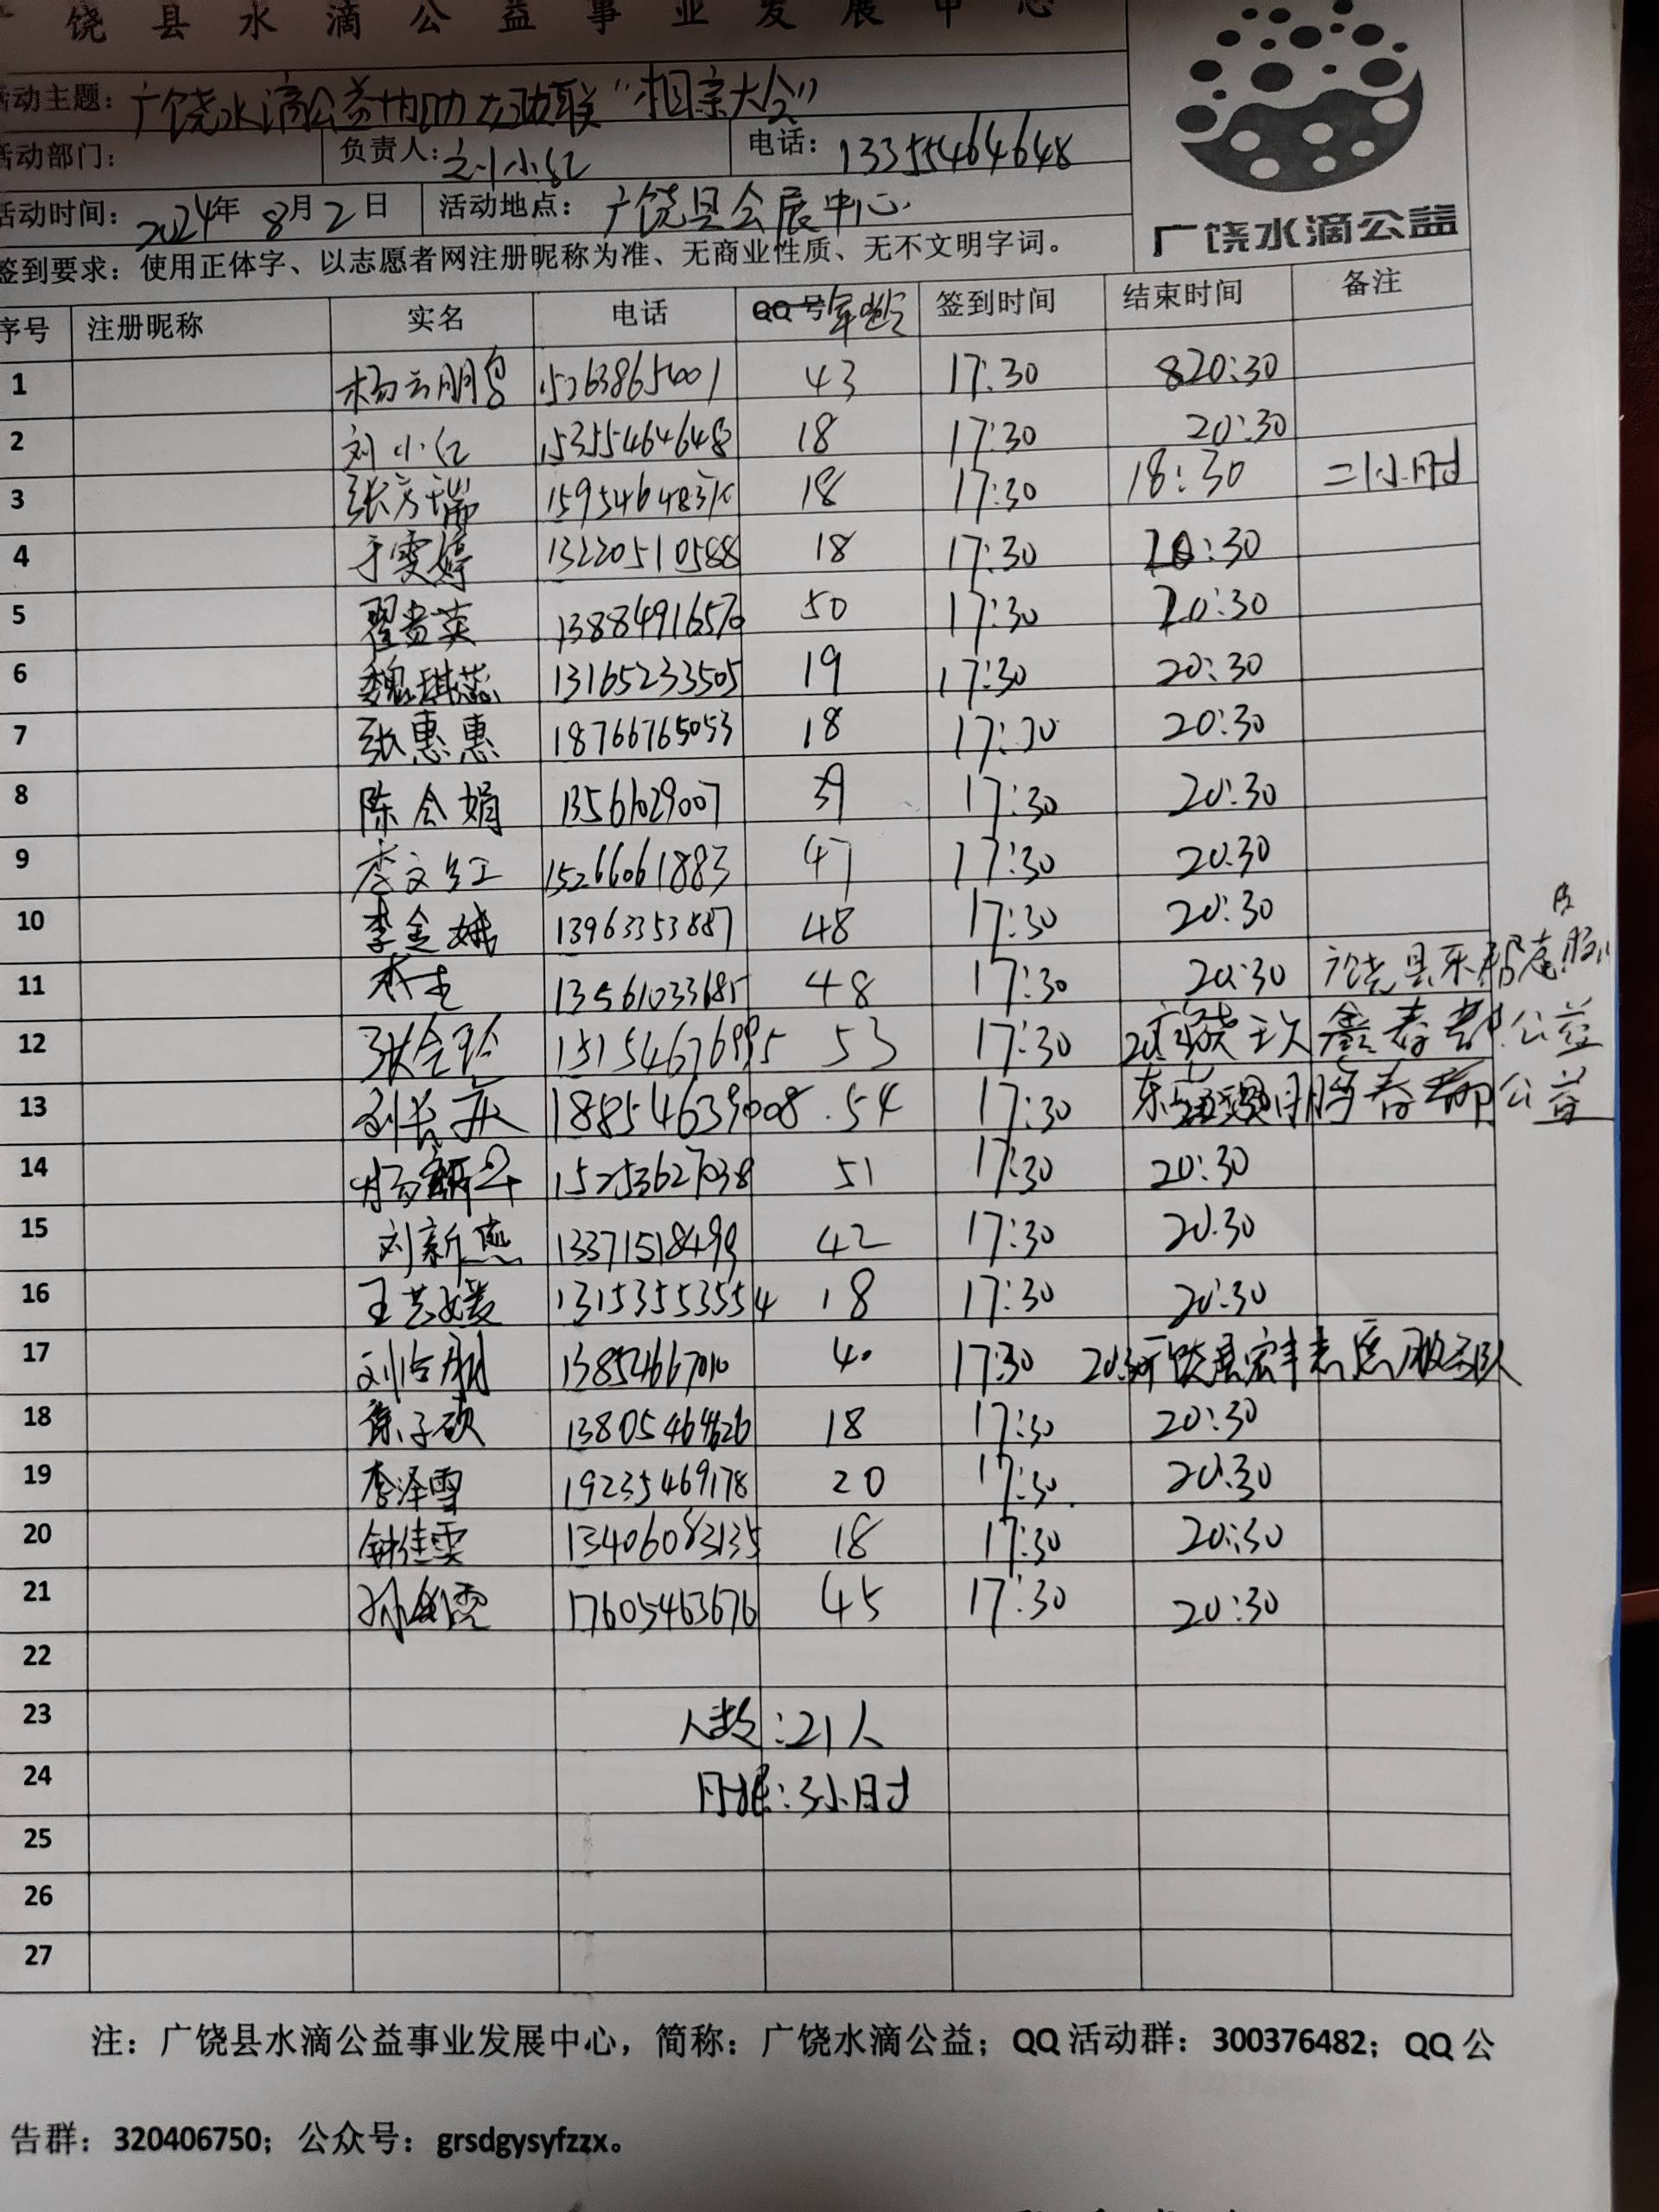 饶县水滴公益事业发展中心
活动主题：广饶水滴公益协助妇联“相亲大会”
活动部门： 负责人：刘小红 电话：13355464648
活动时间：2024年8月2日 活动地点：广饶县会展中心
广饶水滴公益
签到要求：使用正体字、以志愿者网注册昵称为准、无商业性质、无不文明字词。
序号 注册昵称 实名 电话 QQ号 年龄 签到时间 结束时间 备注
1 杨云朋 15263865001 43 17:30 820:30
2 刘小红 15355464648 18 17:30 20:30
3 张方瑞 159546483 18 17:30 18:30 二小时
4 于雯婷 13220510588 18 17:30 20:30
5 翟贵英 13884916570 50 17:30 20:30
6 魏琪蕊 13165233505 19 17:30 20:30
7 张惠惠 18766765053 18 17:30 20:30
8 陈会娟 13561029007 39 17:30 20:30
9 李文红 15266061883 47 17:30 20:30
10 李金娥 13963353887 48 17:30 20:30
11 13561033685 48 17:30 20:30 广饶县乐
12 张会玲 15154676995 53 17:30 广饶 鑫春 公益
13 刘长庆 18854639008 54 17:30 春 公益
14 杨 15253627038 51 17:30 20:30
15 刘新燕 13371518499 42 17:30 20:30
16 王艺媛 13153553554 18 17:30 20:30
17 刘 13854667010 40 17:30 20:30 广饶县宏丰志愿服务队
18 陈子硕 13805464626 18 17:30 20:30
19 李泽雪 19235469178 20 17:30 20:30
20 钟佳雯 13406083135 18 17:30 20:30
21 孙 霞 17605463676 45 17:30 20:30
22
23 人数：21人
24 时长：3小时
25
26
27
注：广饶县水滴公益事业发展中心，简称：广饶水滴公益；QQ活动群：300376482；QQ公
告群：320406750；公众号：grsdgysyfzzx。